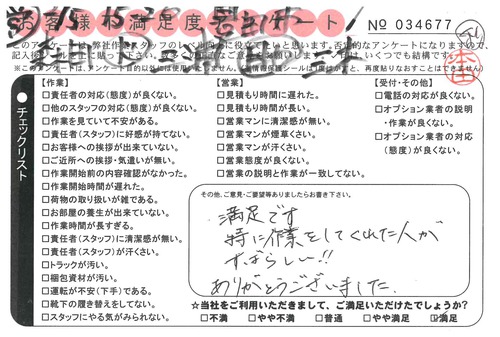 お客様満足度アンケート
No 034677
このアンケートは弊社作業スタッフのレベル向上に役立てたいと思います。否定的なアンケートになりますので、
チェックリスト
【作業】
□責任者の対応(態度)が良くない。
□他のスタッフの対応(態度)が良くない。
□作業を見ていて不安がある。
□責任者(スタッフ)に好感が持てない。
□お客様への挨拶が出来ていない。
□ご近所への挨拶・気遣いが無い。
□作業開始前の内容確認がなかった。
□作業開始時間が遅れた。
□荷物の取り扱いが雑である。
□お部屋の養生が出来ていない。
□作業時間が長すぎる。
□責任者(スタッフ)に清潔感が無い。
□責任者(スタッフ)が汗くさい。
□トラックが汚い。
□梱包資材が汚い。
□運転が不安(下手)である。
□靴下の履き替えをしてない。
□スタッフにやる気がみられない。
【営業】
□見積もり時間に遅れた。
□見積もり時間が長い。
□営業マンに清潔感が無い。
□営業マンが煙草くさい。
□営業マンが汗くさい。
□営業態度が良くない。
□営業の説明と作業が一致してない。
【受付・その他】
□電話の対応が良くない。
□オプション業者の説明
・作業が良くない。
□オプション業者の対応
(態度)が良くない。
その他、ご意見・ご要望等ありましたらお書き下さい。
満足です
特に作業をしてくれた人が
すばらしい!!
ありがとうございました.
☆当社をご利用いただきまして、ご満足いただけたでしょうか?
□不満 □やや不満 □普通 □やや満足 ☑満足